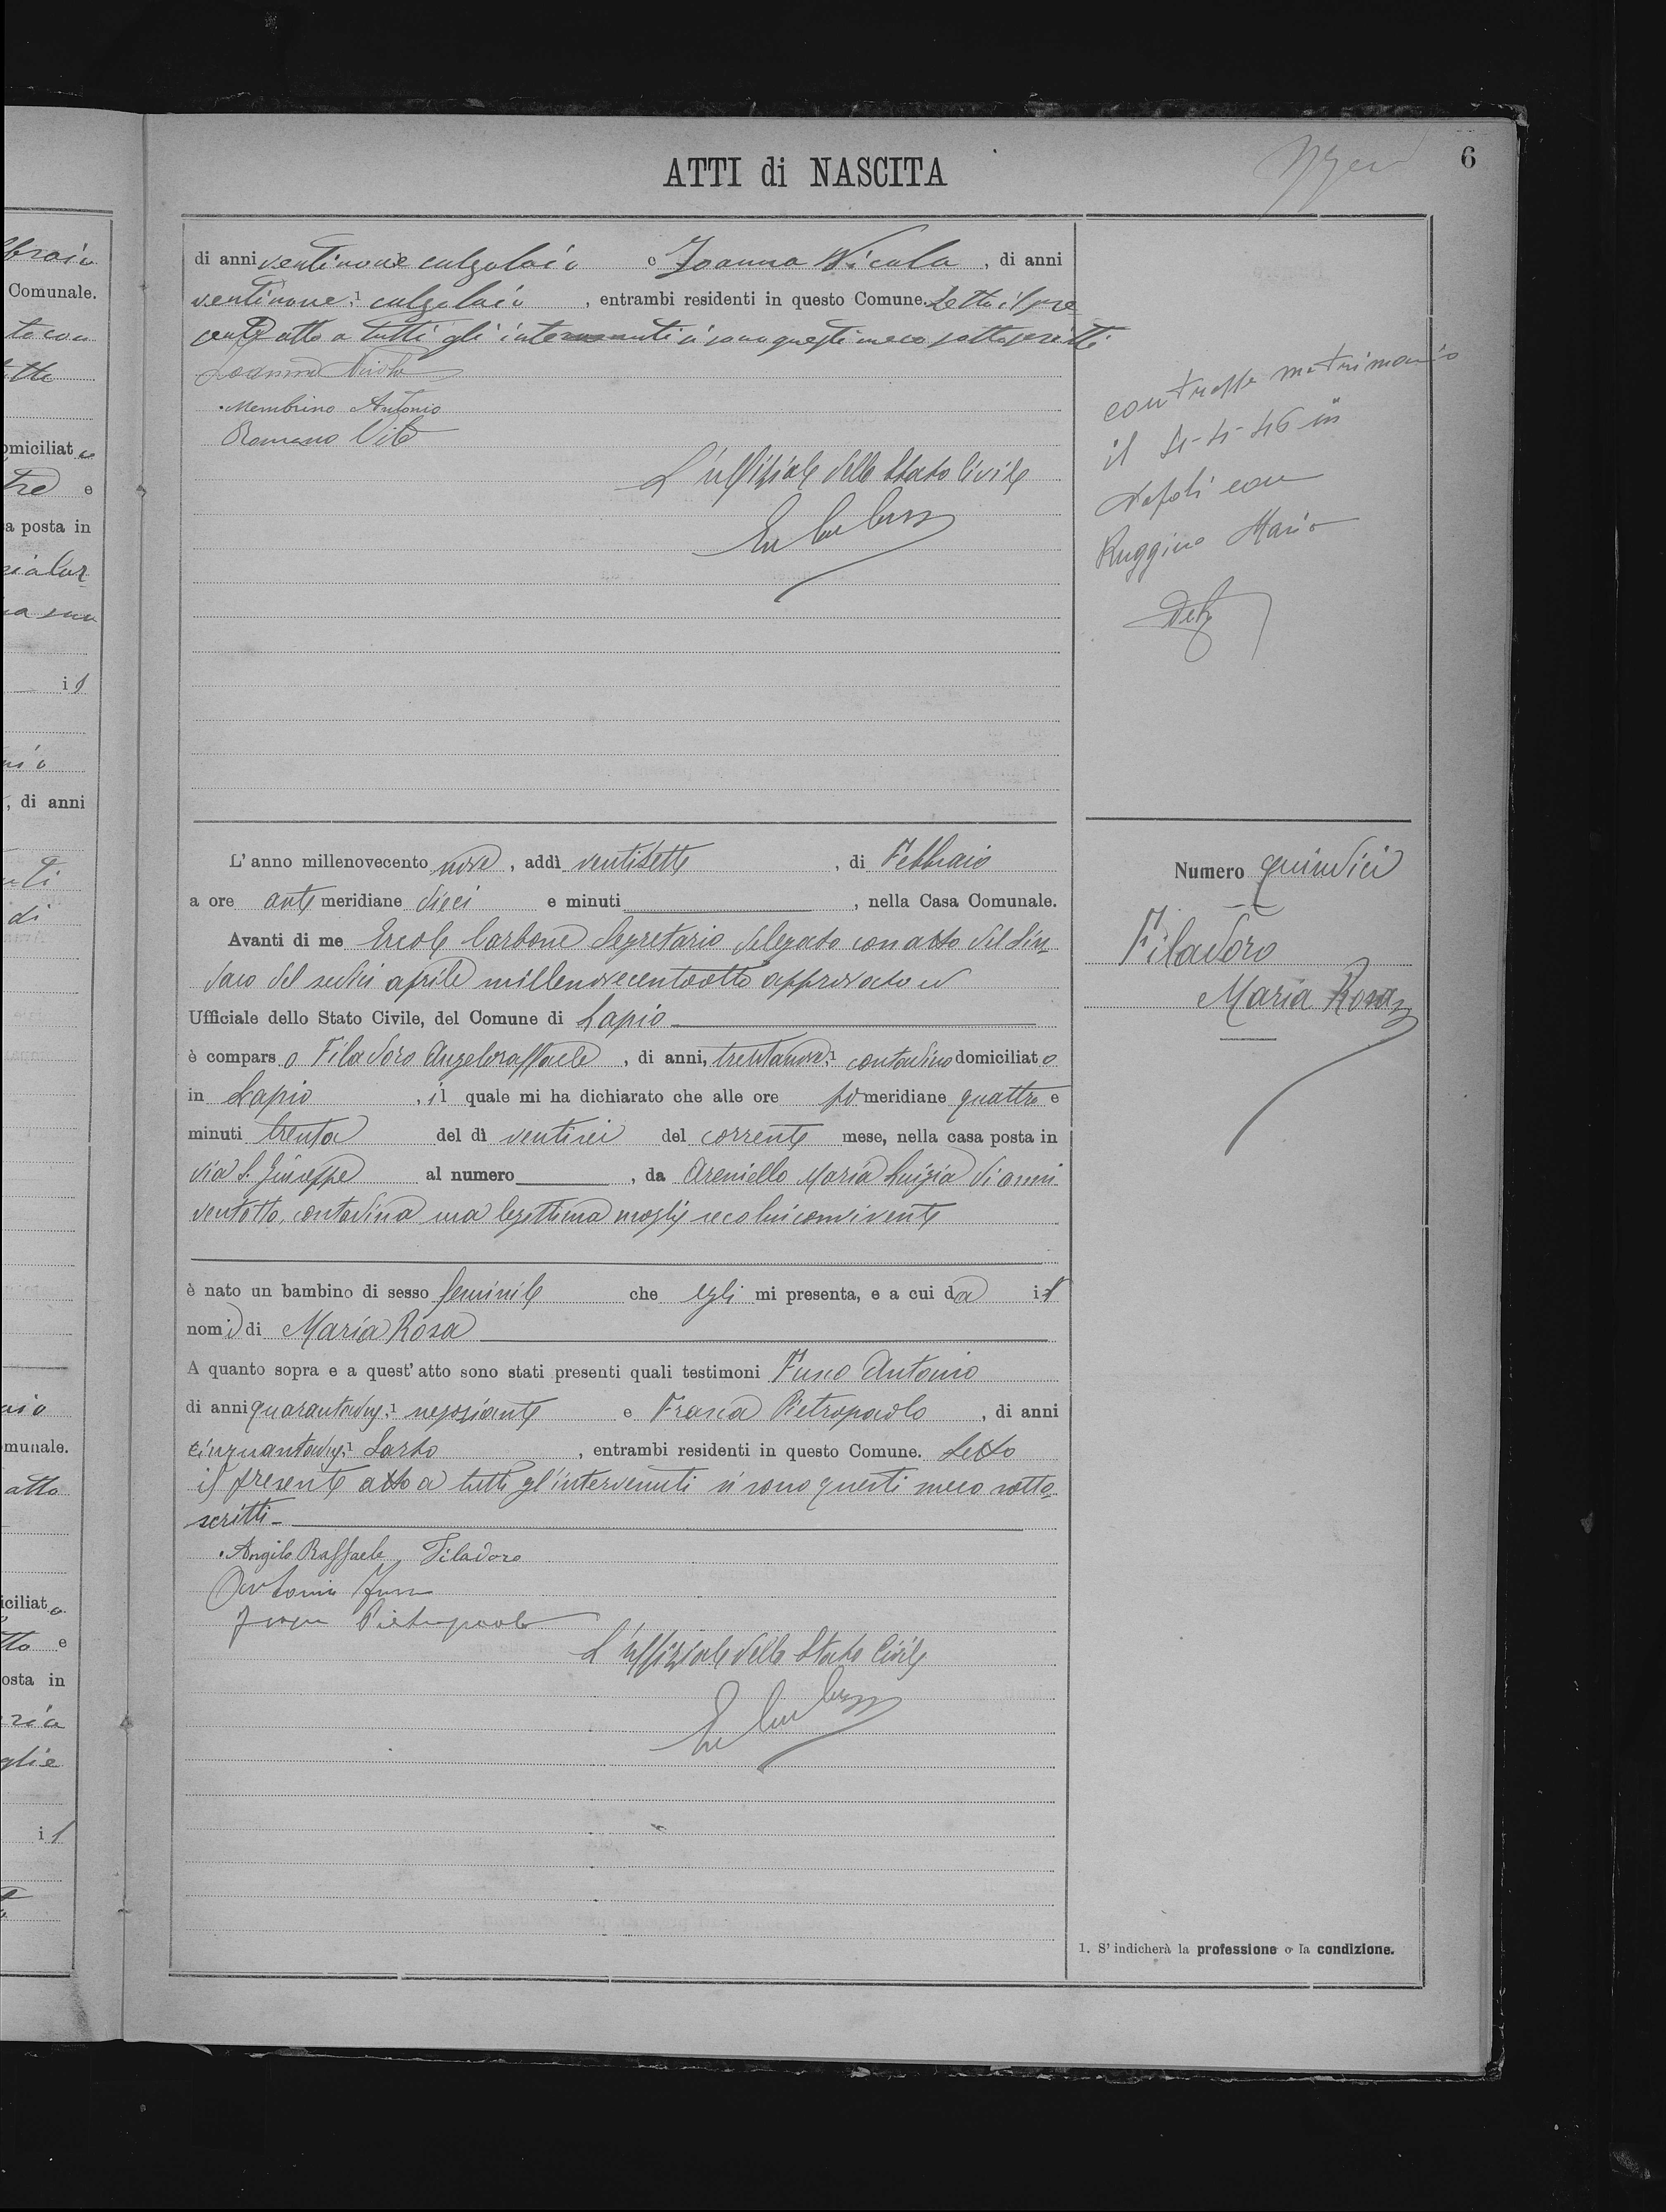 ATTI di NASCITA
6
di anni ventinove calzolaio e Joanna Nicola, di anni
ventinove, calzolaio, entrambi residenti in questo Comune. Letto il pre
sente atto a tutti gli intervenuti si sono questi meco sottoscritti
Joanna Nicola
Membrino Antonio
Romano Vito
L'uffiziale dello Stato Civile
contrasse matrimonio
il
Napoli con
Ruggino Mario
L'anno millenovecento nove, addì ventisette, di Febbraio
a ore antimeridiane dieci e minuti, nella Casa Comunale.
Avanti di me Ercole Carbone Segretario delegato con atto del Sin
daco del sedici aprile millenovecentootto approvato
Ufficiale dello Stato Civile, del Comune di Lapio
è comparso Filadoro Angeloraffaele, di anni, trentanove, contadino domiciliato
in Lapio, il quale mi ha dichiarato che alle ore pomeridiane quattro e
minuti trenta del dì ventisei del corrente mese, nella casa posta in
via S. Giuseppe al numero, da Areniello Maria Luigia di anni
ventotto, contadina sua legittima moglie seco lui convivente
è nato un bambino di sesso feminile che egli mi presenta, e a cui da il
nome di Maria Rosa
A quanto sopra e a quest'atto sono stati presenti quali testimoni Fusco Antonio
di anni quarantadue, negoziante e Frasca Pietropaolo, di anni
cinquantadue, Sarto, entrambi residenti in questo Comune. Letto
il presente atto a tutti gl'intervenuti si sono questi meco sotto
scritti
Angilo Raffaele Filadoro
Antonio
Pietropaolo
L'uffiziale dello Stato Civile
Numero quindici
Filadoro
Maria Rosa
1. S'indicherà la professione o la condizione.
Comunale.
to con
omiciliat
tre e
a posta in
il
, di anni
di
omunale.
atto
iciliat
tto e
osta in
ria
glie
il